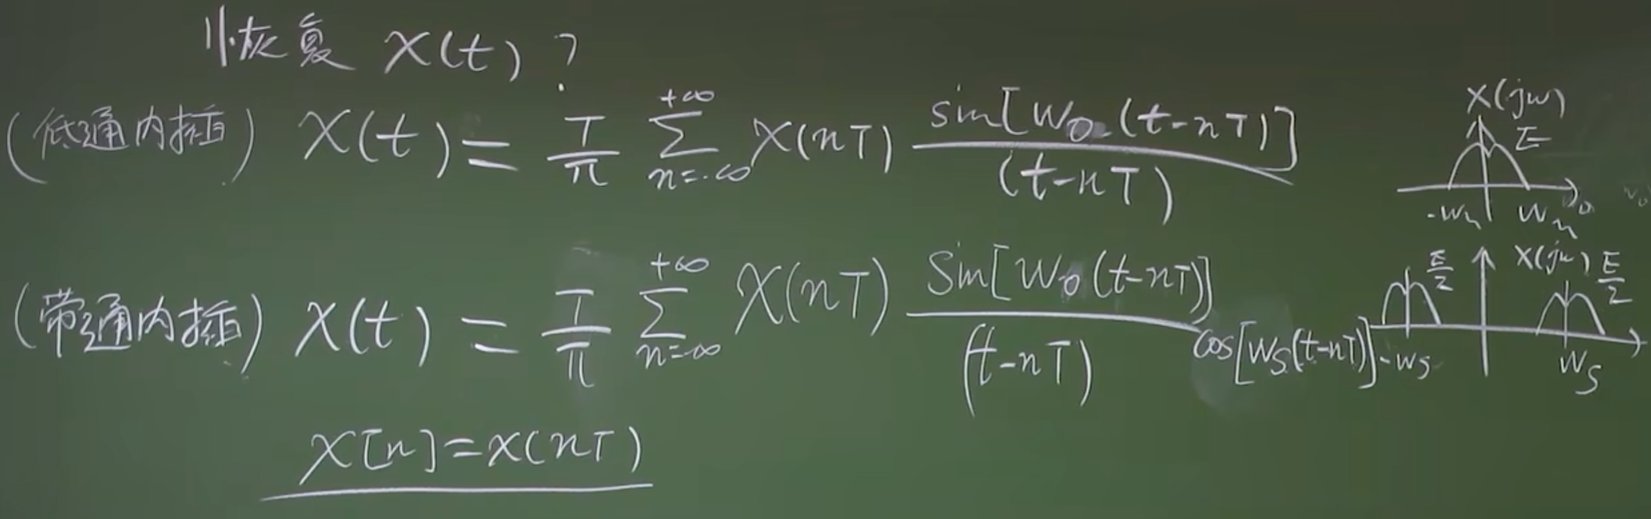 恢复 X(t)?
(低通内插) X(t) = T/π Σ_{n=-∞}^{+∞} X(nT) sin[W0(t-nT)]/(t-nT)
X(jw)
E
-Wm Wm
(带通内插) X(t) = T/π Σ_{n=-∞}^{+∞} X(nT) Sin[W0(t-nT)]/(t-nT) cos[WS(t-nT)]
E/2 X(jw) E/2
-WS WS
X[n]=X(nT)